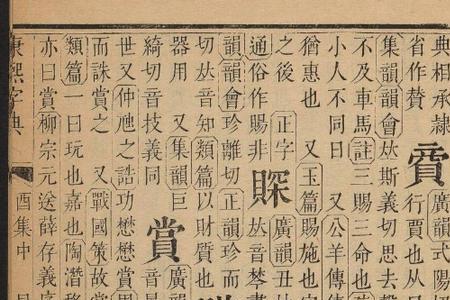 典相承隷
省作賛
賷廣韻式陽切
行賈也从貝
集韻韻會𠀤斯義切思去
不及車馬註三賜三命也
小人不同日 又公羊傳
猶惠也 又玉篇賜施也
之後 正字
通俗作賜非
賝廣韻丑
𠀤音琴
韻韻會珍離切正韻珍而
切𠀤音知類篇以財質也
器用 又集韻巨
綺切音技義同
賞廣
世又仲虺之誥功懋懋賞
而誅賞之 又戰國策故
類篇一曰玩也嘉也陶潛
亦曰賞柳宗元送薛存義
康熙字典 酉集中